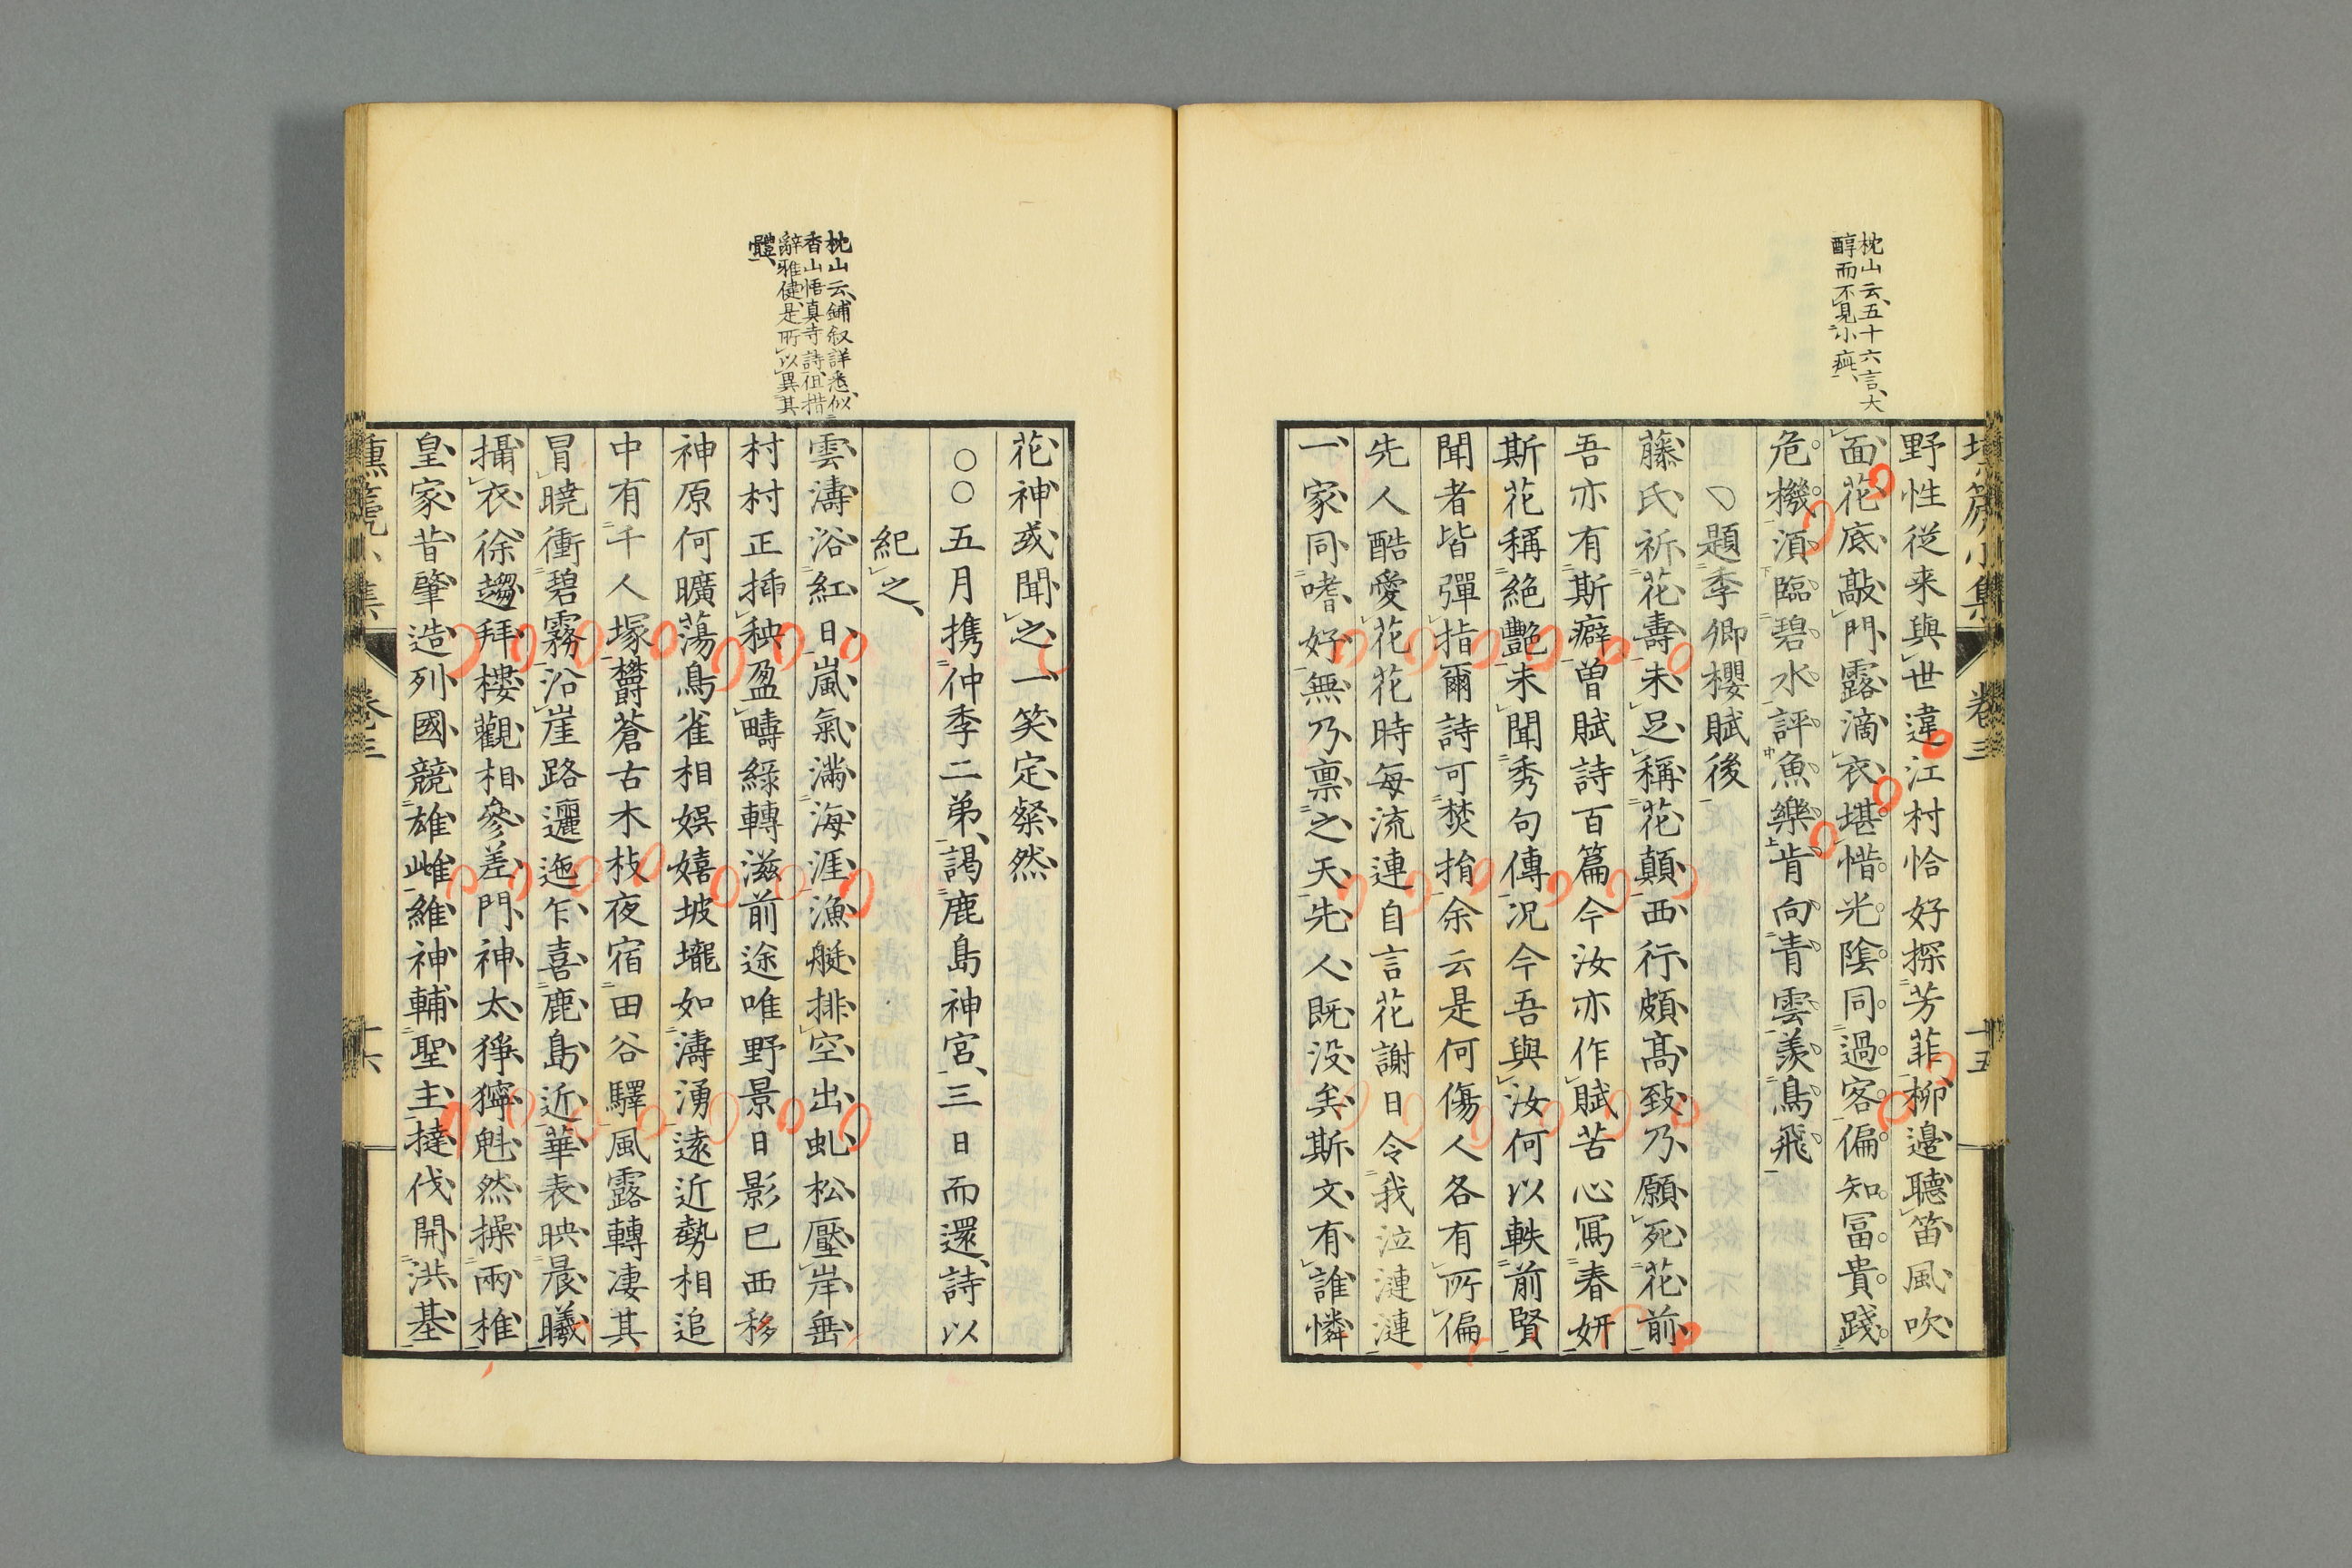 枕山云、五十六言、大
醇而不見小疵、
塤箎小集 卷三 十五
野性從来與世違江村恰好探芳菲柳邊聽笛風吹
面花底敲門露滴衣堪惜光陰同過客偏知冨貴踐
危機須臨碧水評魚樂肯向青雲羨鳥飛
題季卿櫻賦後
藤氏祈花壽未足稱花顛西行頗髙致乃願死花前
吾亦有斯癖曽賦詩百篇今汝亦作賦苦心冩春妍
斯花稱絶艷未聞秀句傳況今吾與汝何以軼前賢
聞者皆彈指爾詩可焚捐余云是何傷人各有所偏
先人酷愛花花時每流連自言花謝日令我泣漣漣
一家同嗜好無乃禀之天先人既没矣斯文有誰憐
枕山云、鋪叙詳悉、似
香山悟真寺詩、但措
辭雅健、是所以異其
體、
花神或聞之一笑定粲然
○○五月攜仲季二弟、謁鹿島神宮、三日而還、詩以
紀之、
雲濤浴紅日嵐氣滿海涯漁艇排空出虬松壓岸垂
村村正插秧盈疇綠轉滋前途唯野景日影已西移
神原何曠蕩鳥雀相娯嬉坡壠如濤湧逺近勢相追
中有千人塚欝蒼古木枝夜宿田谷驛風露轉凄其
冒曉衝碧霧沿崖路邐迤乍喜鹿島近華表映晨曦
攝衣徐趨拜樓觀相參差門神太猙獰魁然操兩椎
皇家昔肇造列國競雄雌維神輔聖主撻伐開洪基
卷三